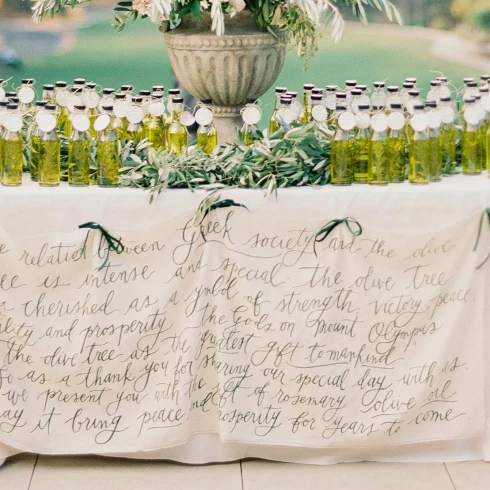 relation between Greek society and the olive
ee is intense and special. the olive tree
cherished as a symbol of strength, victory, peace,
ility and prosperity. the Gods on Mount Olympus
the olive tree as the greatest gift to mankind.
as a thank you for sharing our special day with us.
we present you with the gift of rosemary olive oil
ay it bring peace and prosperity for years to come